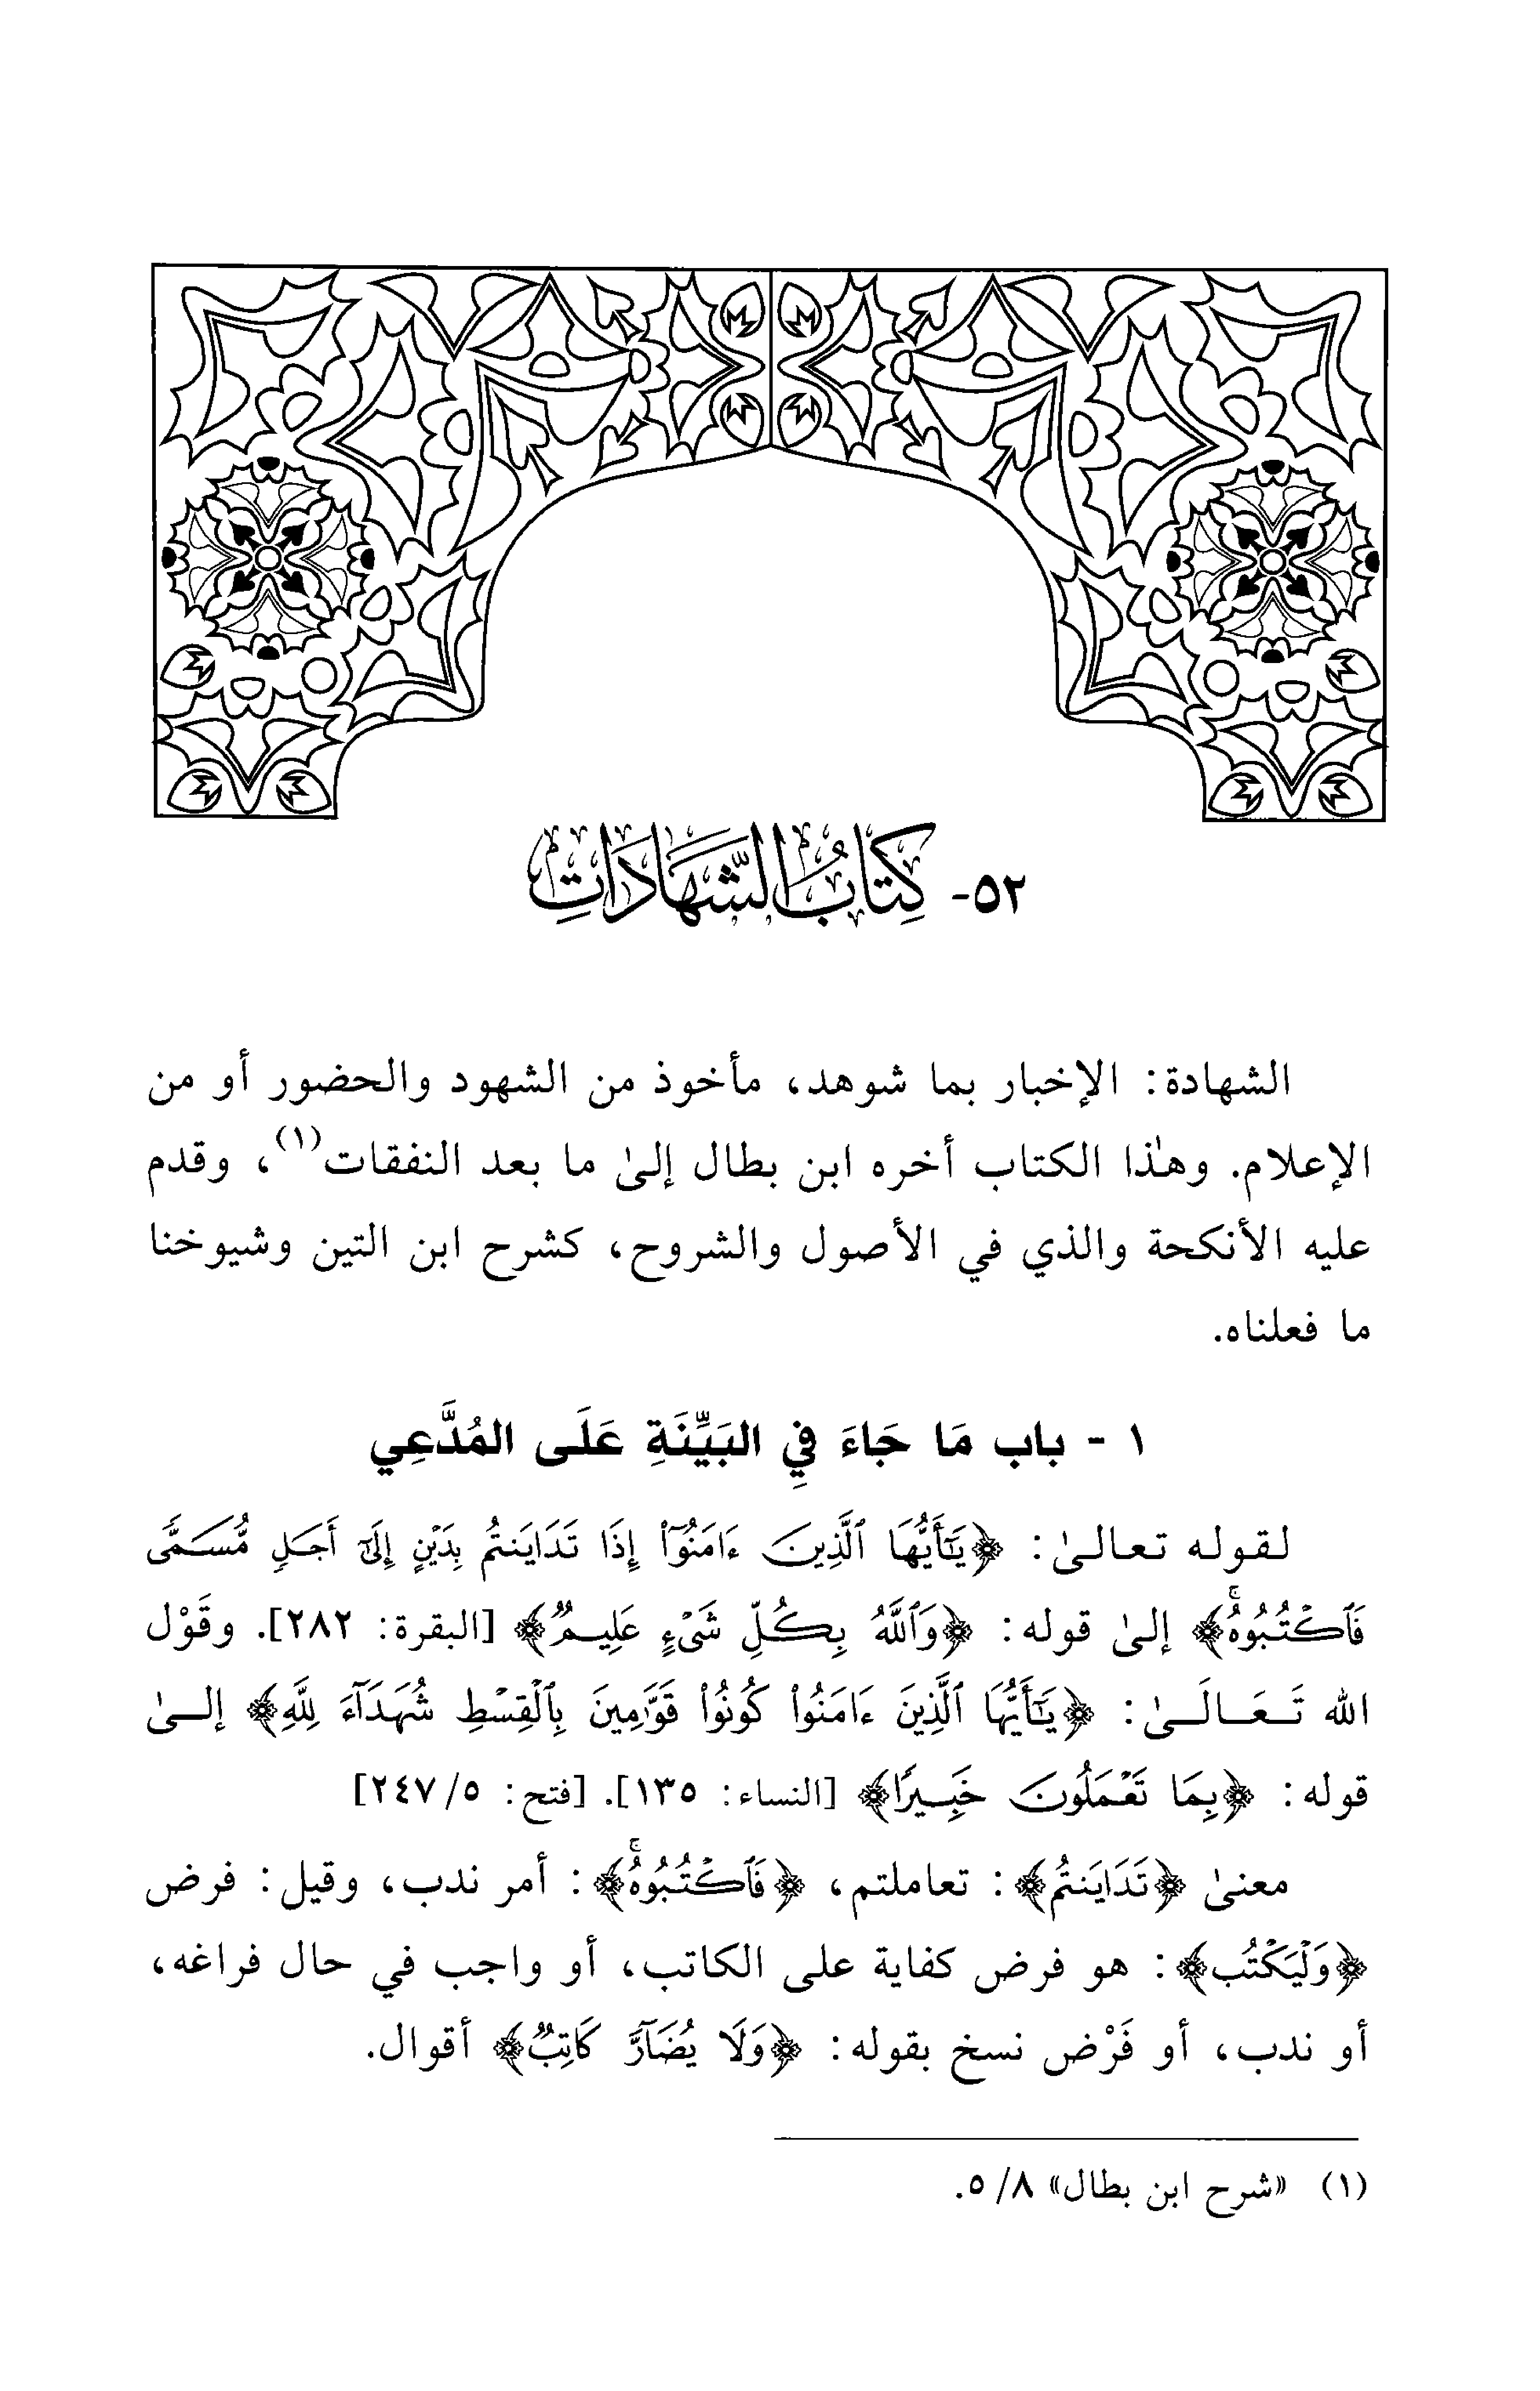 ٥٢- كِتَابُ الشَّهَادَاتِ
الشهادة: الإخبار بما شوهد، مأخوذ من الشهود والحضور أو من
الإعلام. وهٰذا الكتاب أخره ابن بطال إلىٰ ما بعد النفقات(١)، وقدم
عليه الأنكحة والذي في الأصول والشروح، كشرح ابن التين وشيوخنا
ما فعلناه.
١ - باب مَا جَاءَ فِي البَيِّنَةِ عَلَى المُدَّعِي
لقوله تعالىٰ: ﴿يَٰٓأَيُّهَا ٱلَّذِينَ ءَامَنُوٓاْ إِذَا تَدَايَنتُم بِدَيْنٍ إِلَىٰٓ أَجَلٍ مُّسَمًّى
فَٱكْتُبُوهُۚ﴾ إلىٰ قوله: ﴿وَٱللَّهُ بِكُلِّ شَىْءٍ عَلِيمٌ﴾ [البقرة: ٢٨٢]. وقَوْل
الله تَعَالَىٰ: ﴿يَٰٓأَيُّهَا ٱلَّذِينَ ءَامَنُواْ كُونُواْ قَوَّٰمِينَ بِٱلْقِسْطِ شُهَدَآءَ لِلَّهِ﴾ إلىٰ
قوله: ﴿بِمَا تَعْمَلُونَ خَبِيرًا﴾ [النساء: ١٣٥]. [فتح: ٥/ ٢٤٧]
معنىٰ ﴿تَدَايَنتُم﴾: تعاملتم، ﴿فَٱكْتُبُوهُۚ﴾: أمر ندب، وقيل: فرض
﴿وَلْيَكْتُب﴾: هو فرض كفاية على الكاتب، أو واجب في حال فراغه،
أو ندب، أو فَرْض نسخ بقوله: ﴿وَلَا يُضَآرَّ كَاتِبٌ﴾ أقوال.
(١) «شرح ابن بطال» ٨/ ٥.